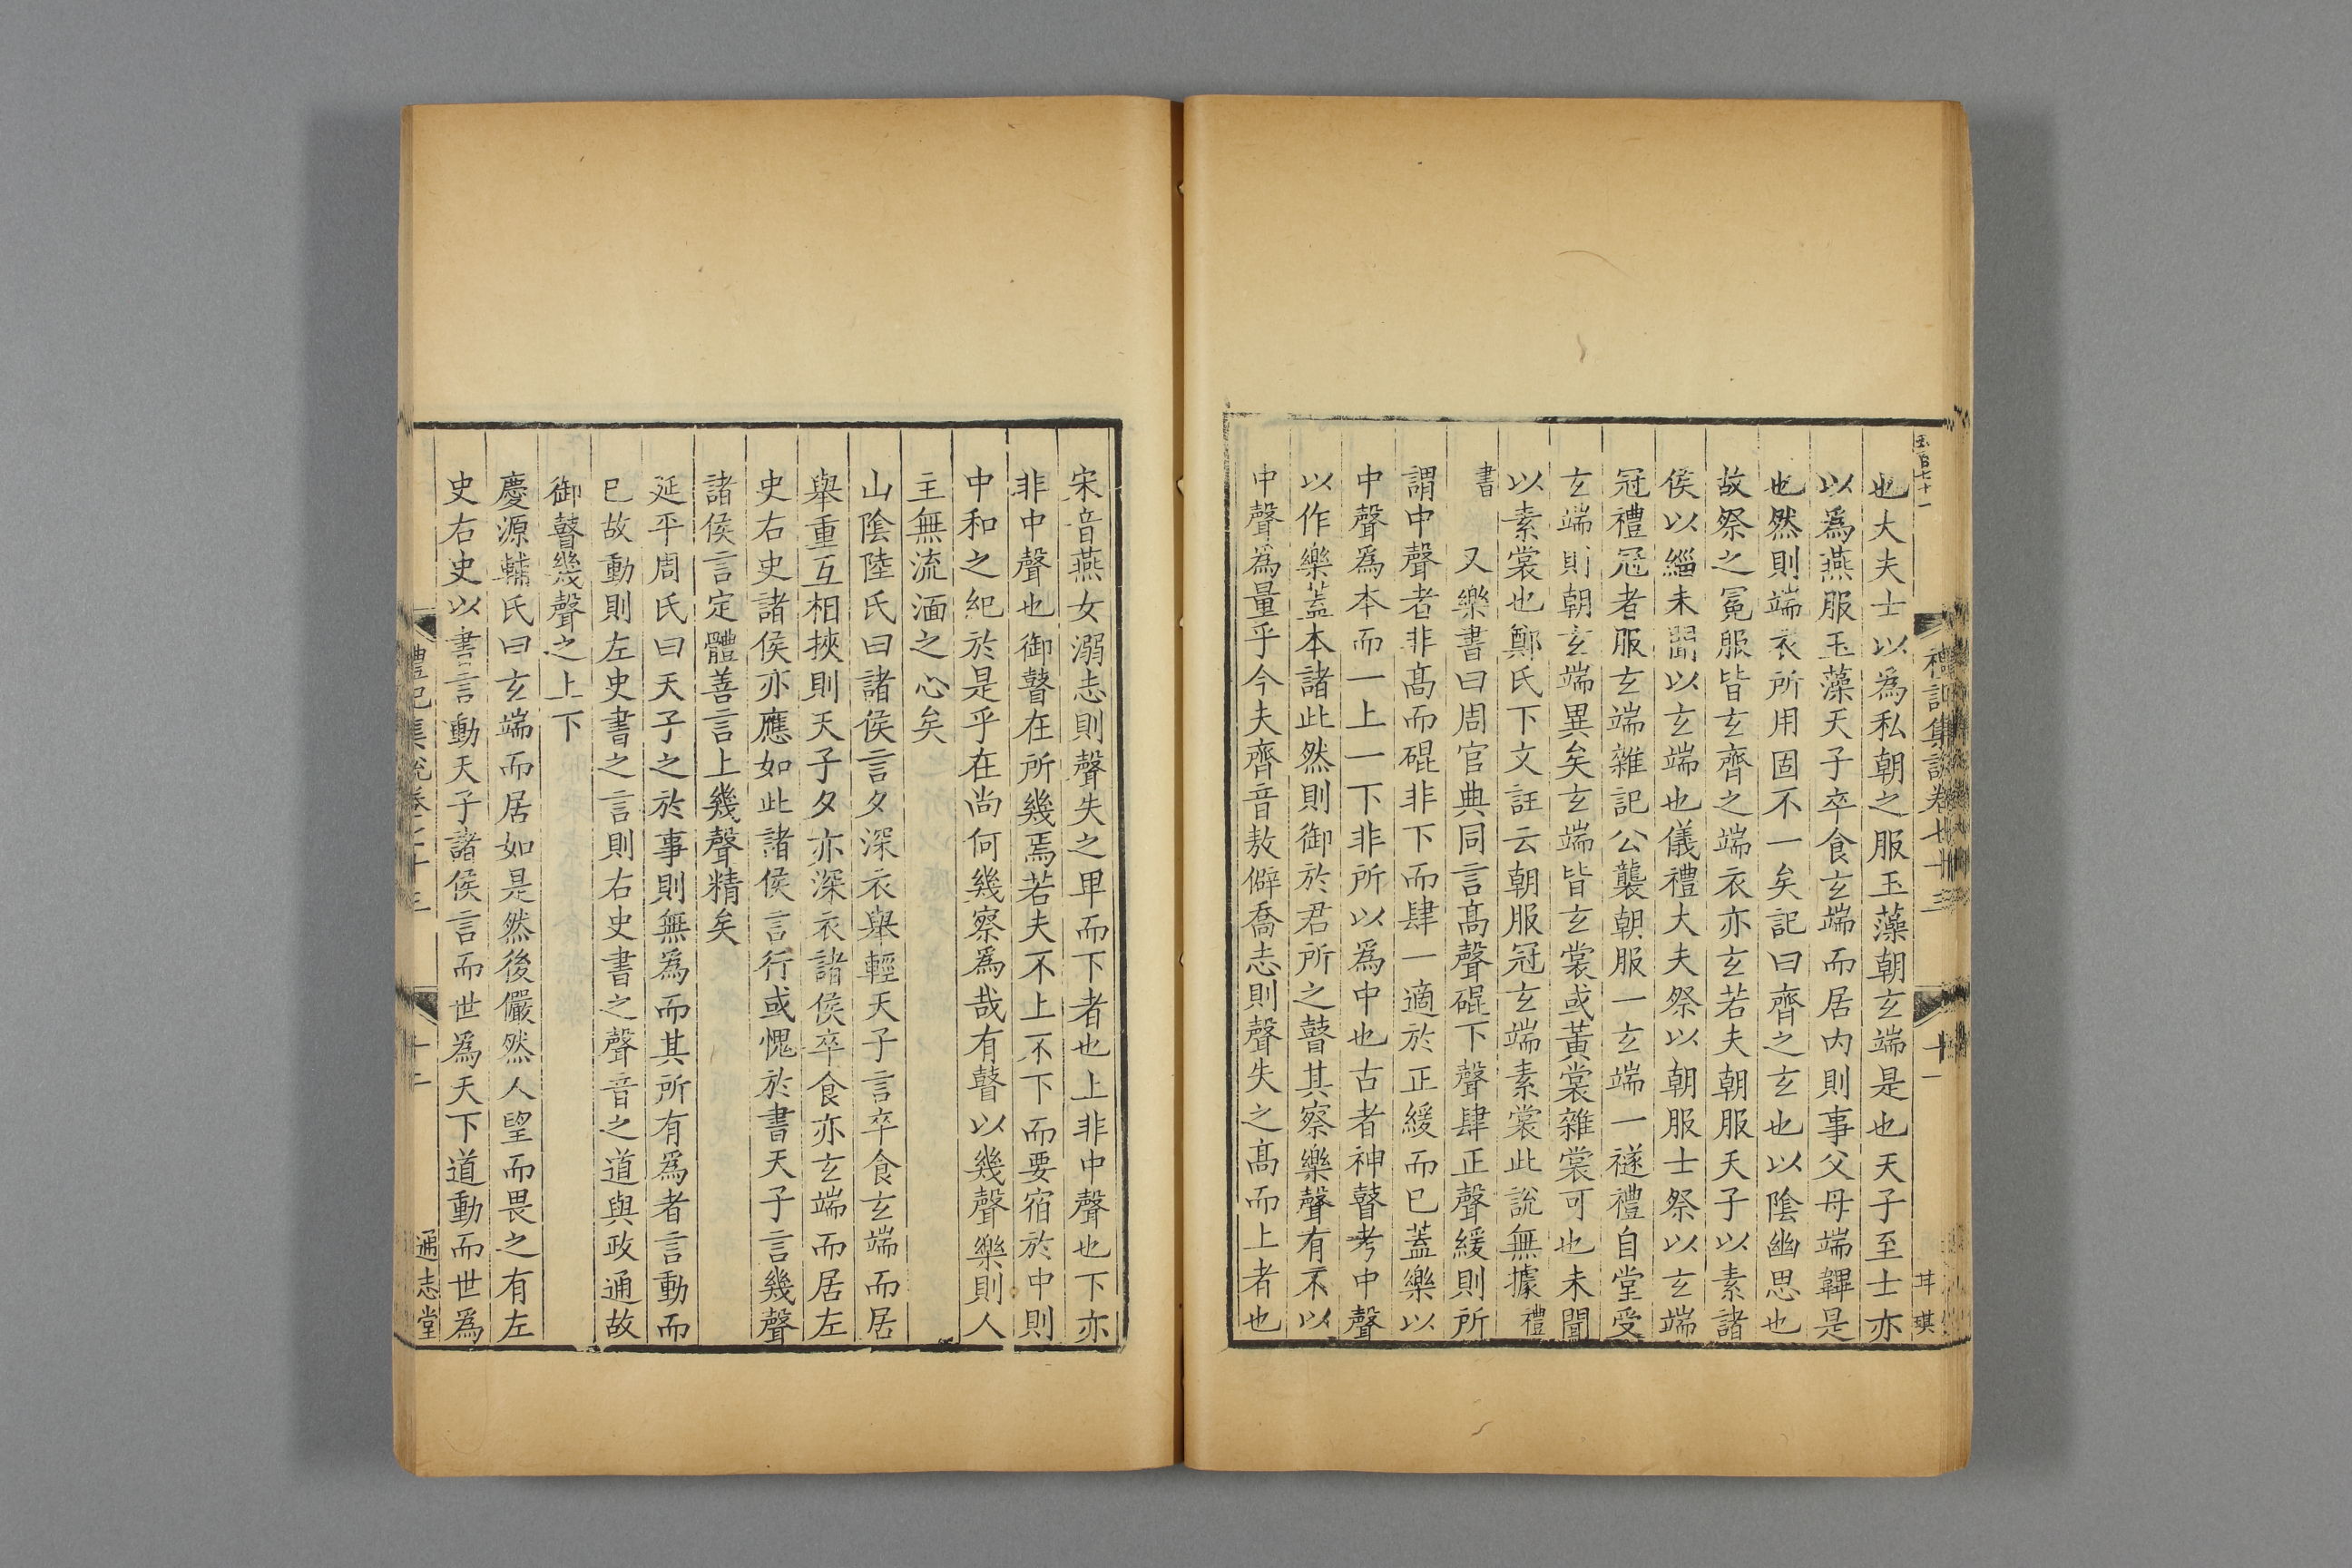 禮記集說卷七十三
十一
也大夫士以為私朝之服玉藻朝玄端是也天子至士亦
以爲燕服玉藻天子卒食玄端而居内則事父母端韠是
也然則端衣所用固不一矣記曰齊之玄也以陰幽思也
故祭之冕服皆玄齊之端衣亦玄若夫朝服天子以素諸
侯以緇未聞以玄端也儀禮大夫祭以朝服士祭以玄端
冠禮冠者服玄端雜記公襲朝服一玄端一襚禮自堂受
玄端則朝玄端異矣玄端皆玄裳或黃裳雜裳可也未聞
以素裳也鄭氏下文註云朝服冠玄端素裳此說無據禮
書　又樂書曰周官典同言髙聲䃂下聲肆正聲緩則所
謂中聲者非髙而䃂非下而肆一適於正緩而已蓋樂以
中聲爲本而一上一下非所以爲中也古者神瞽考中聲
以作樂蓋本諸此然則御於君所之瞽其察樂聲有不以
中聲爲量乎今夫齊音敖僻喬志則聲失之髙而上者也
宋音燕女溺志則聲失之卑而下者也上非中聲也下亦
非中聲也御瞽在所幾焉若夫不上不下而要宿於中則
中和之紀於是乎在尚何幾察爲哉有瞽以幾聲樂則人
主無流湎之心矣
山陰陸氏曰諸侯言夕深衣舉輕天子言卒食玄端而居
舉重互相挾則天子夕亦深衣諸侯卒食亦玄端而居左
史右史諸侯亦應如此諸侯言行或愧於書天子言幾聲
諸侯言定體善言上幾聲精矣
延平周氏曰天子之於事則無爲而其所有爲者言動而
已故動則左史書之言則右史書之聲音之道與政通故
御瞽幾聲之上下
慶源輔氏曰玄端而居如是然後儼然人望而畏之有左
史右史以書言動天子諸侯言而世爲天下道動而世爲
禮記集說卷七十三
十二
通志堂